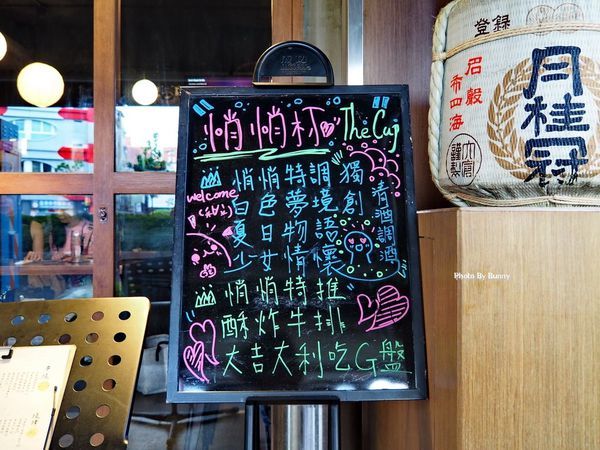 悄悄杯 The Cup
悄悄特調 獨創
清酒調酒
welcome
白色夢境
夏日物語
少女情懷
悄悄特推
酥炸牛排
大吉大利吃G盤
The Cup
登録
名
穀
布四海
月桂冠
謹製
Photo By Bunny